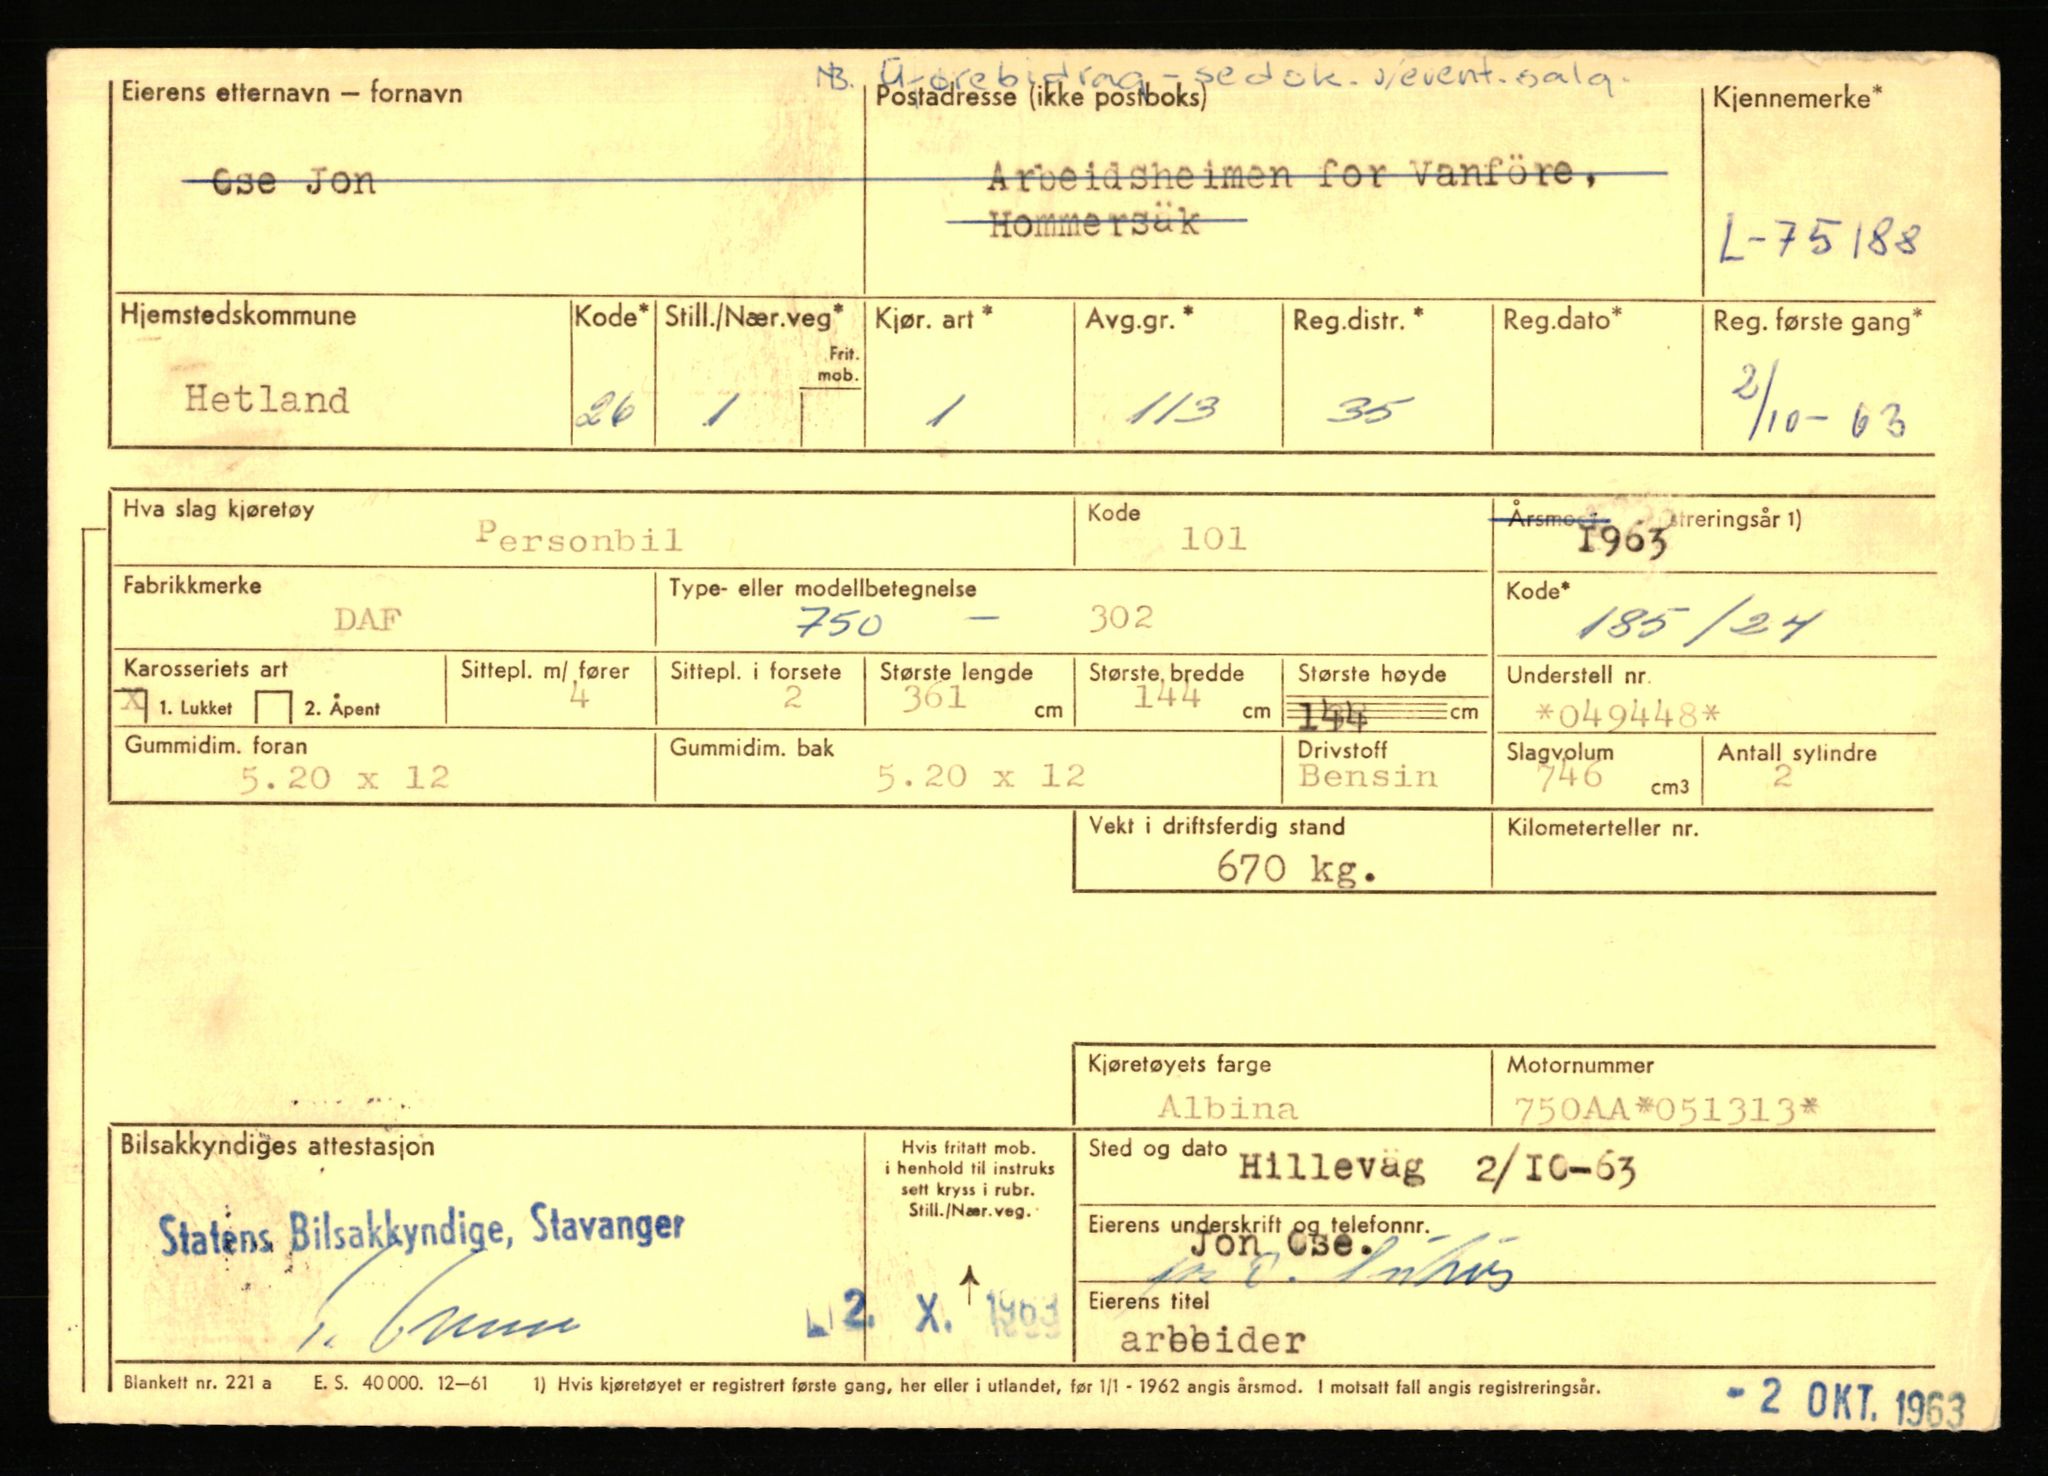 NB. Uførebidrag - se dok. v/event. salg.
Eierens etternavn – fornavn
Postadresse (ikke postboks)
Kjennemerke*
Ose Jon
Arbeidsheimen for Vanföre,
Hommersäk
L-75188
Hjemstedskommune
Kode*
Still./Nær.veg*
Frit. mob.
Kjør. art*
Avg.gr.*
Reg.distr.*
Reg.dato*
Reg. første gang*
Hetland
26
1
1
113
35
2/10-63
Hva slag kjøretøy
Personbil
Kode
101
streringsår 1)
1963
Fabrikkmerke
DAF
Type- eller modellbetegnelse
750 - 302
Kode*
185/24
Karosseriets art
X 1. Lukket
2. Åpent
Sittepl. m/ fører
4
Sittepl. i forsete
2
Største lengde
361 cm
Største bredde
144 cm
Største høyde
144 cm
Understell nr.
*049448*
Gummidim. foran
5.20 x 12
Gummidim. bak
5.20 x 12
Drivstoff
Bensin
Slagvolum
746 cm3
Antall sylindre
2
Vekt i driftsferdig stand
670 kg.
Kilometerteller nr.
Kjøretøyets farge
Albina
Motornummer
750AA*051313*
Bilsakkyndiges attestasjon
Statens Bilsakkyndige, Stavanger
2. X. 1963
Hvis fritatt mob.
i henhold til instruks
sett kryss i rubr.
Still./Nær.veg.
Sted og dato
Hilleväg 2/IO-63
Eierens underskrift og telefonnr.
Jon Ose.
Eierens titel
arbeider
Blankett nr. 221 a E. S. 40 000. 12–61 1) Hvis kjøretøyet er registrert første gang, her eller i utlandet, før 1/1 - 1962 angis årsmod. I motsatt fall angis registreringsår.
- 2 OKT. 1963